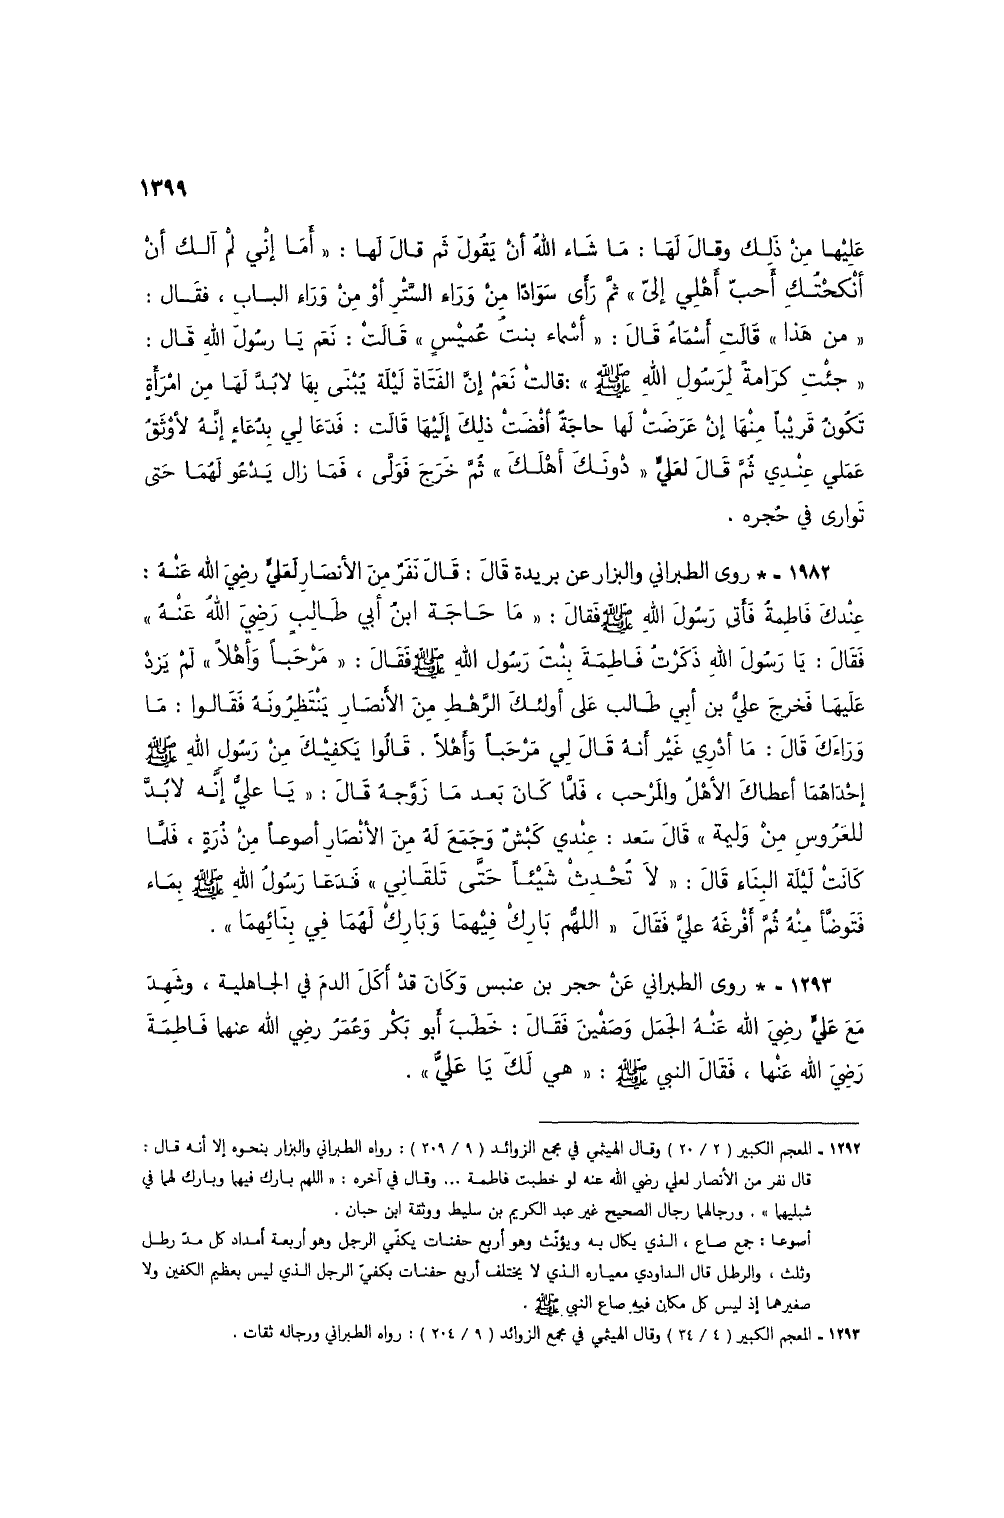 ١٣٩٩
عَلَيْها مِنْ ذَلِك وقالَ لَهَا : مَا شَاء اللهُ أنْ يَقُولَ ثَم قالَ لَها : « أَمَا إنْي لَمْ آلكِ أنْ
أَنْكَحْتُكِ أَحبّ أَهْلي إلىّ » ثمَّ رَأى سَوَادًا مِنْ وَرَاء السَّتْرِ أوْ مِنْ وَرَاء الباب ، فقال :
« من هَذا » قَالَتِ أَسْمَاءُ قَالَ : « أسْماء بنتُ عُميْسٍ » قَالَتْ : نَعَم يَا رسُولَ اللهِ قال :
« جئْتِ كرَامةً لِرَسُولِ اللهِ ﷺ » :قالتْ نَعَمْ إنَّ الفَتَاةَ لَيْلَة يُبْنَى بِهَا لابُدَّ لَهَا مِن امْرَأَةٍ
تَكُونُ قَريْباً مِنْهَا إنْ عَرَضَتْ لَها حاجَةً أفْضَتْ ذلِكَ إلَيْهَا قالَت : فَدَعَا لِي بِدُعَاءٍ إنَّهُ لأوْثَقُ
عَمَلي عِنْدِي ثُمَّ قَالَ لعَليٍّ « دُونَكَ أهْلَكَ » ثُمَّ خَرَجَ فَوَلَّى ، فَمَا زال يَدْعُو لَهُمَا حَتى
تَوارى في حُجره .
١٩٨٢ - * روى الطبراني والبزار عن بريدة قَالَ : قَالَ نَفَرٌ مِنَ الأنصَارِ لَعَليٍّ رضِيَ الله عَنْهُ :
عِنْدكَ فَاطِمةُ فَأتى رَسُولَ اللهِ ﷺ فَقالَ : « مَا حَاجَة ابنُ أبي طَالِبٍ رَضِيَ اللهُ عَنْهُ »
فَقَالَ : يَا رَسُولَ اللهِ ذَكَرْتُ فَاطِمَةَ بِنْتَ رَسُول اللهِ ﷺ فَقَالَ : « مَرْحَباً وَأَهْلاً » لَمْ يَزدْ
عَلَيهَا فَخرجَ عليُّ بن أبي طَالب عَلى أولئكَ الرَّهْطِ مِنَ الأنصَارِ يَنْتَظِرُونَهُ فَقَالوا : مَا
وَرَاءَكَ قَالَ : مَا أدْرِي غَيْر أنهُ قَالَ لِي مَرْحَباً وَأهْلاً . قَالُوا يَكفِيْكَ مِنْ رَسُولِ اللهِ ﷺ
إحْدَاهُمَا أعطاكَ الأهْلَ والمَرْحب ، فَلمَّا كَانَ بَعد مَا زَوَّجهُ قَالَ : « يَا عليُّ إنَّه لابُدَّ
للعَرُوسِ مِنْ وَليمة » قَالَ سَعد : عِنْدي كَبْشٌ وَجَمَعَ لَهُ مِنَ الأنْصَارِ أصوعاً مِنْ ذُرَةٍ ، فَلمَّا
كَانَتْ لَيْلَة البِنَاء قَالَ : « لاَ تُحْدِثْ شَيْئاً حَتَّى تَلْقَاني » فَدَعَا رَسُولُ اللهِ ﷺ بِمَاء
فَتَوضَّأ مِنْهُ ثُمَّ أفْرغَهُ عليَّ فَقَالَ « اللهُم بَارِكْ فِيْهمَا وَبَارِكْ لَهُمَا فِي بِنَائِهِمَا » .
١٢٩٣ - * روى الطبراني عَنْ حجر بن عنبس وَكَانَ قدْ أكَلَ الدمَ في الجاهلية ، وشَهِدَ
مَعَ عَليٍّ رضِيَ الله عَنْهُ الجَمَل وَصَفْينَ فَقَالَ : خَطَبَ أبو بَكْرٍ وَعُمَرُ رضِي الله عنهما فَاطِمَةَ
رَضِيَ الله عَنْها ، فَقَالَ النبي ﷺ : « هي لَكَ يَا عَليَّ » .
١٢٩٢ - المعجم الكبير ( ٢ / ٢٠ ) وقال الهيثي في مجمع الزوائد ( ٩ / ٢٠٩ ) : رواه الطبراني والبزار بنحوه إلا أنه قال :
قال نفر من الأنصار لعلي رضي الله عنه لو خطبت فاطمة ... وقال في آخره : « اللهم بارك فيهما وبارك لهما في
شبليهما » . ورجالهما رجال الصحيح غير عبد الكريم بن سليط ووثقة ابن حبان .
أصوعا : جمع صاع ، الذي يكال به ويؤنّث وهو أربع حفنات يكفّي الرجل وهو أربعة أمداد كل مدّ رطل
وثلث ، والرطل قال الداودي معياره الذي لا يختلف أربع حفنات بكفيّ الرجل الذي ليس بعظيم الكفين ولا
صغيرهما إذ ليس كل مكان فيه صاع النبي ﷺ .
١٢٩٣ - المعجم الكبير ( ٤ / ٣٤ ) وقال الهيثمي في مجمع الزوائد ( ٩ / ٢٠٤ ) : رواه الطبراني ورجاله ثقات .